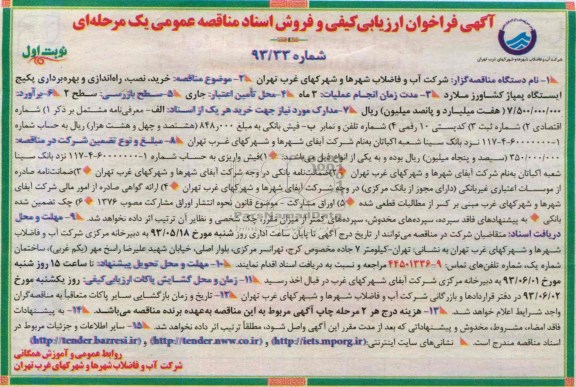 آگهی فراخوان ارزیابی‌کیفی و فروش اسناد مناقصه عمومی یک مرحله‌ای
شماره ۹۳/۳۳
نوبت اول
شرکت آب و فاضلاب شهرها و شهرکهای غرب تهران
۱- نام دستگاه مناقصه‌گزار: شرکت آب و فاضلاب شهرها و شهرکهای غرب تهران ۲- موضوع مناقصه: خرید، نصب، راه‌اندازی و بهره‌برداری پکیج
ایستگاه پمپاژ کشاورز ملارد ۳- مدت زمان انجام عملیات: ۳ ماه ۴- محل تأمین اعتبار: جاری ۵- سطح بازرسی: سطح ۲ ۶- برآورد:
۷/۵۰۰/۰۰۰/۰۰۰ (هفت میلیارد و پانصد میلیون) ریال ۷- مدارک مورد نیاز جهت خرید هر یک از اسناد: الف- معرفی‌نامه مشتمل بر ذکر ۱) شماره
اقتصادی ۲) شماره ثبت ۳) کدپستی ۱۰ رقمی ۴) شماره تلفن و نمابر ب- فیش بانکی به مبلغ ۸۴۸/۰۰۰ (هشتصد و چهل و هشت هزار) ریال به حساب شماره
۱۱۷-۴-۶۰۰۰۰۰۰-۱ نزد بانک سینا شعبه اکباتان به‌نام شرکت آبفای شهرها و شهرکهای غرب تهران ۸- مبلغ و نوع تضمین شرکت در مناقصه:
۳۵۰/۰۰۰/۰۰۰ (سیصد و پنجاه میلیون) ریال بوده و به یکی از انواع ذیل می‌باشد: ۱) فیش واریزی به حساب شماره ۱۱۷-۴-۶۰۰۰۰۰۰-۱ نزد بانک سینا
شعبه اکباتان به‌نام شرکت آبفای شهرها و شهرکهای غرب تهران ۲) ضمانت‌نامه بانکی در وجه شرکت آبفای شهرها و شهرکهای غرب تهران ۳) ضمانت‌نامه صادره
از موسسات اعتباری غیربانکی (دارای مجوز از بانک مرکزی) در وجه شرکت آبفای شهرها و شهرکهای غرب تهران ۴) ارائه گواهی صادره از امور مالی شرکت آبفای
شهرها و شهرکهای غرب تهران مبنی بر کسر از مطالبات قطعی شده ۵) اوراق مشارکت - موضوع قانون نحوه انتشار اوراق مشارکت مصوب ۱۳۷۶ ۶) چک تضمین شده
بانکی به پیشنهادهای فاقد سپرده، سپرده‌های مخدوش، سپرده‌های کمتر از میزان مقرر، چک شخصی و نظایر آن ترتیب اثر داده نخواهد شد. ۹- مهلت و محل
دریافت اسناد: متقاضیان شرکت در مناقصه می‌توانند از تاریخ درج آگهی تا پایان ساعت اداری روز شنبه مورخ ۹۳/۰۵/۱۸ به دبیرخانه مرکزی شرکت آب و فاضلاب
شهرها و شهرکهای غرب تهران به نشانی: تهران- کیلومتر ۷ جاده مخصوص کرج، تهرانسر مرکزی، بلوار اصلی، خیابان شهید علیرضا راسخ مهر (یکم غربی)، ساختمان
شماره یک، شماره تلفن‌های تماس: ۹-۴۴۵۰۱۳۳۶ مراجعه و نسبت به دریافت اسناد اقدام نمایند. ۱۰- مهلت و محل تحویل پیشنهاد: تا ساعت ۱۵ روز شنبه
مورخ ۹۳/۰۶/۰۱ به دبیرخانه مرکزی شرکت آبفای شهرکهای غرب در قبال اخذ رسید ۱۱- زمان و محل گشایش پاکات ارزیابی‌کیفی: روز یکشنبه مورخ
۹۳/۰۶/۰۲ در دفتر قراردادها و بازرگانی شرکت آب و فاضلاب شهرها و شهرکهای غرب تهران ۱۲- تاریخ و زمان بازگشایی سایر پاکات متعاقباً به مناقصه‌گران
واجد شرایط اعلام خواهد شد. ۱۳- هزینه درج هر ۲ مرحله چاپ آگهی مربوط به این مناقصه به‌عهده برنده مناقصه می‌باشد. ۱۴- به پیشنهادات
فاقد امضاء، مشروط، مخدوش و پیشنهاداتی که بعد از مدت مقرر این آگهی واصل شود، مطلقاً ترتیب اثر داده نخواهد شد. ۱۵- سایر اطلاعات و جزئیات مربوط در
اسناد مناقصه مندرج است. نشانی‌های سایت اینترنتی: (http://iets.mporg.ir) و (http://tender.nww.co.ir) و (http://tender.bazresi.ir)
روابط عمومی و آموزش همگانی
شرکت آب و فاضلاب شهرها و شهرکهای غرب تهران